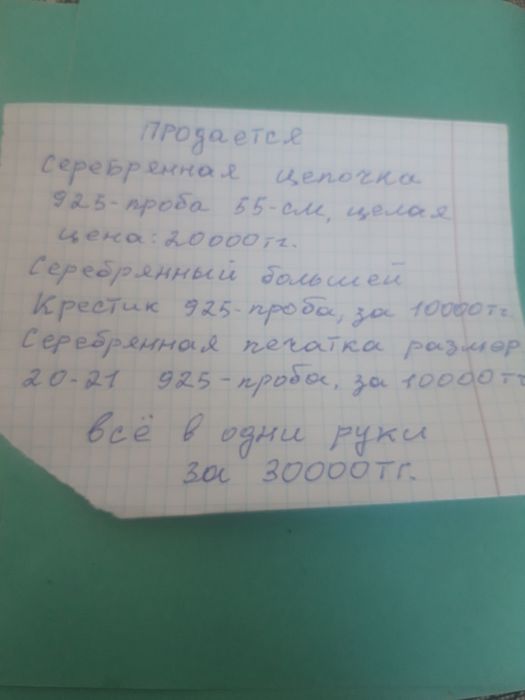 Продается
Серебрянная цепочка
925-проба 55-см, целая
цена: 20000тг.
Серебрянный большей
Крестик 925-проба, за 10000тг
Серебрянная печатка размер
20-21 925-проба, за 10000тг
всё в одни руки
за 30000тг.